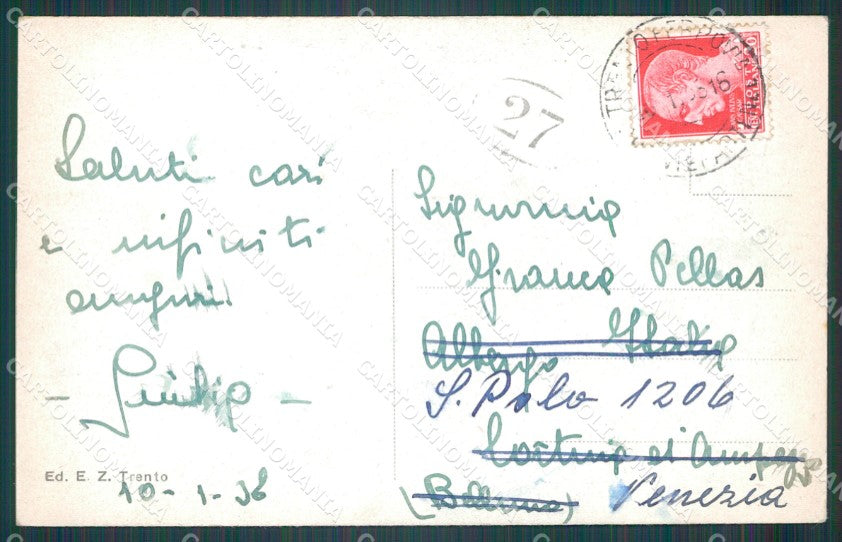 27
Saluti cari
e infiniti
auguri.
- Giulia -
Ed. E. Z. Trento
10-1-36
Signorina
Franca Pellas
Albergo Italia
S. Polo 1206
Cortina di Ampezzo
(Belluno) Venezia
CARTOLINOMANIA